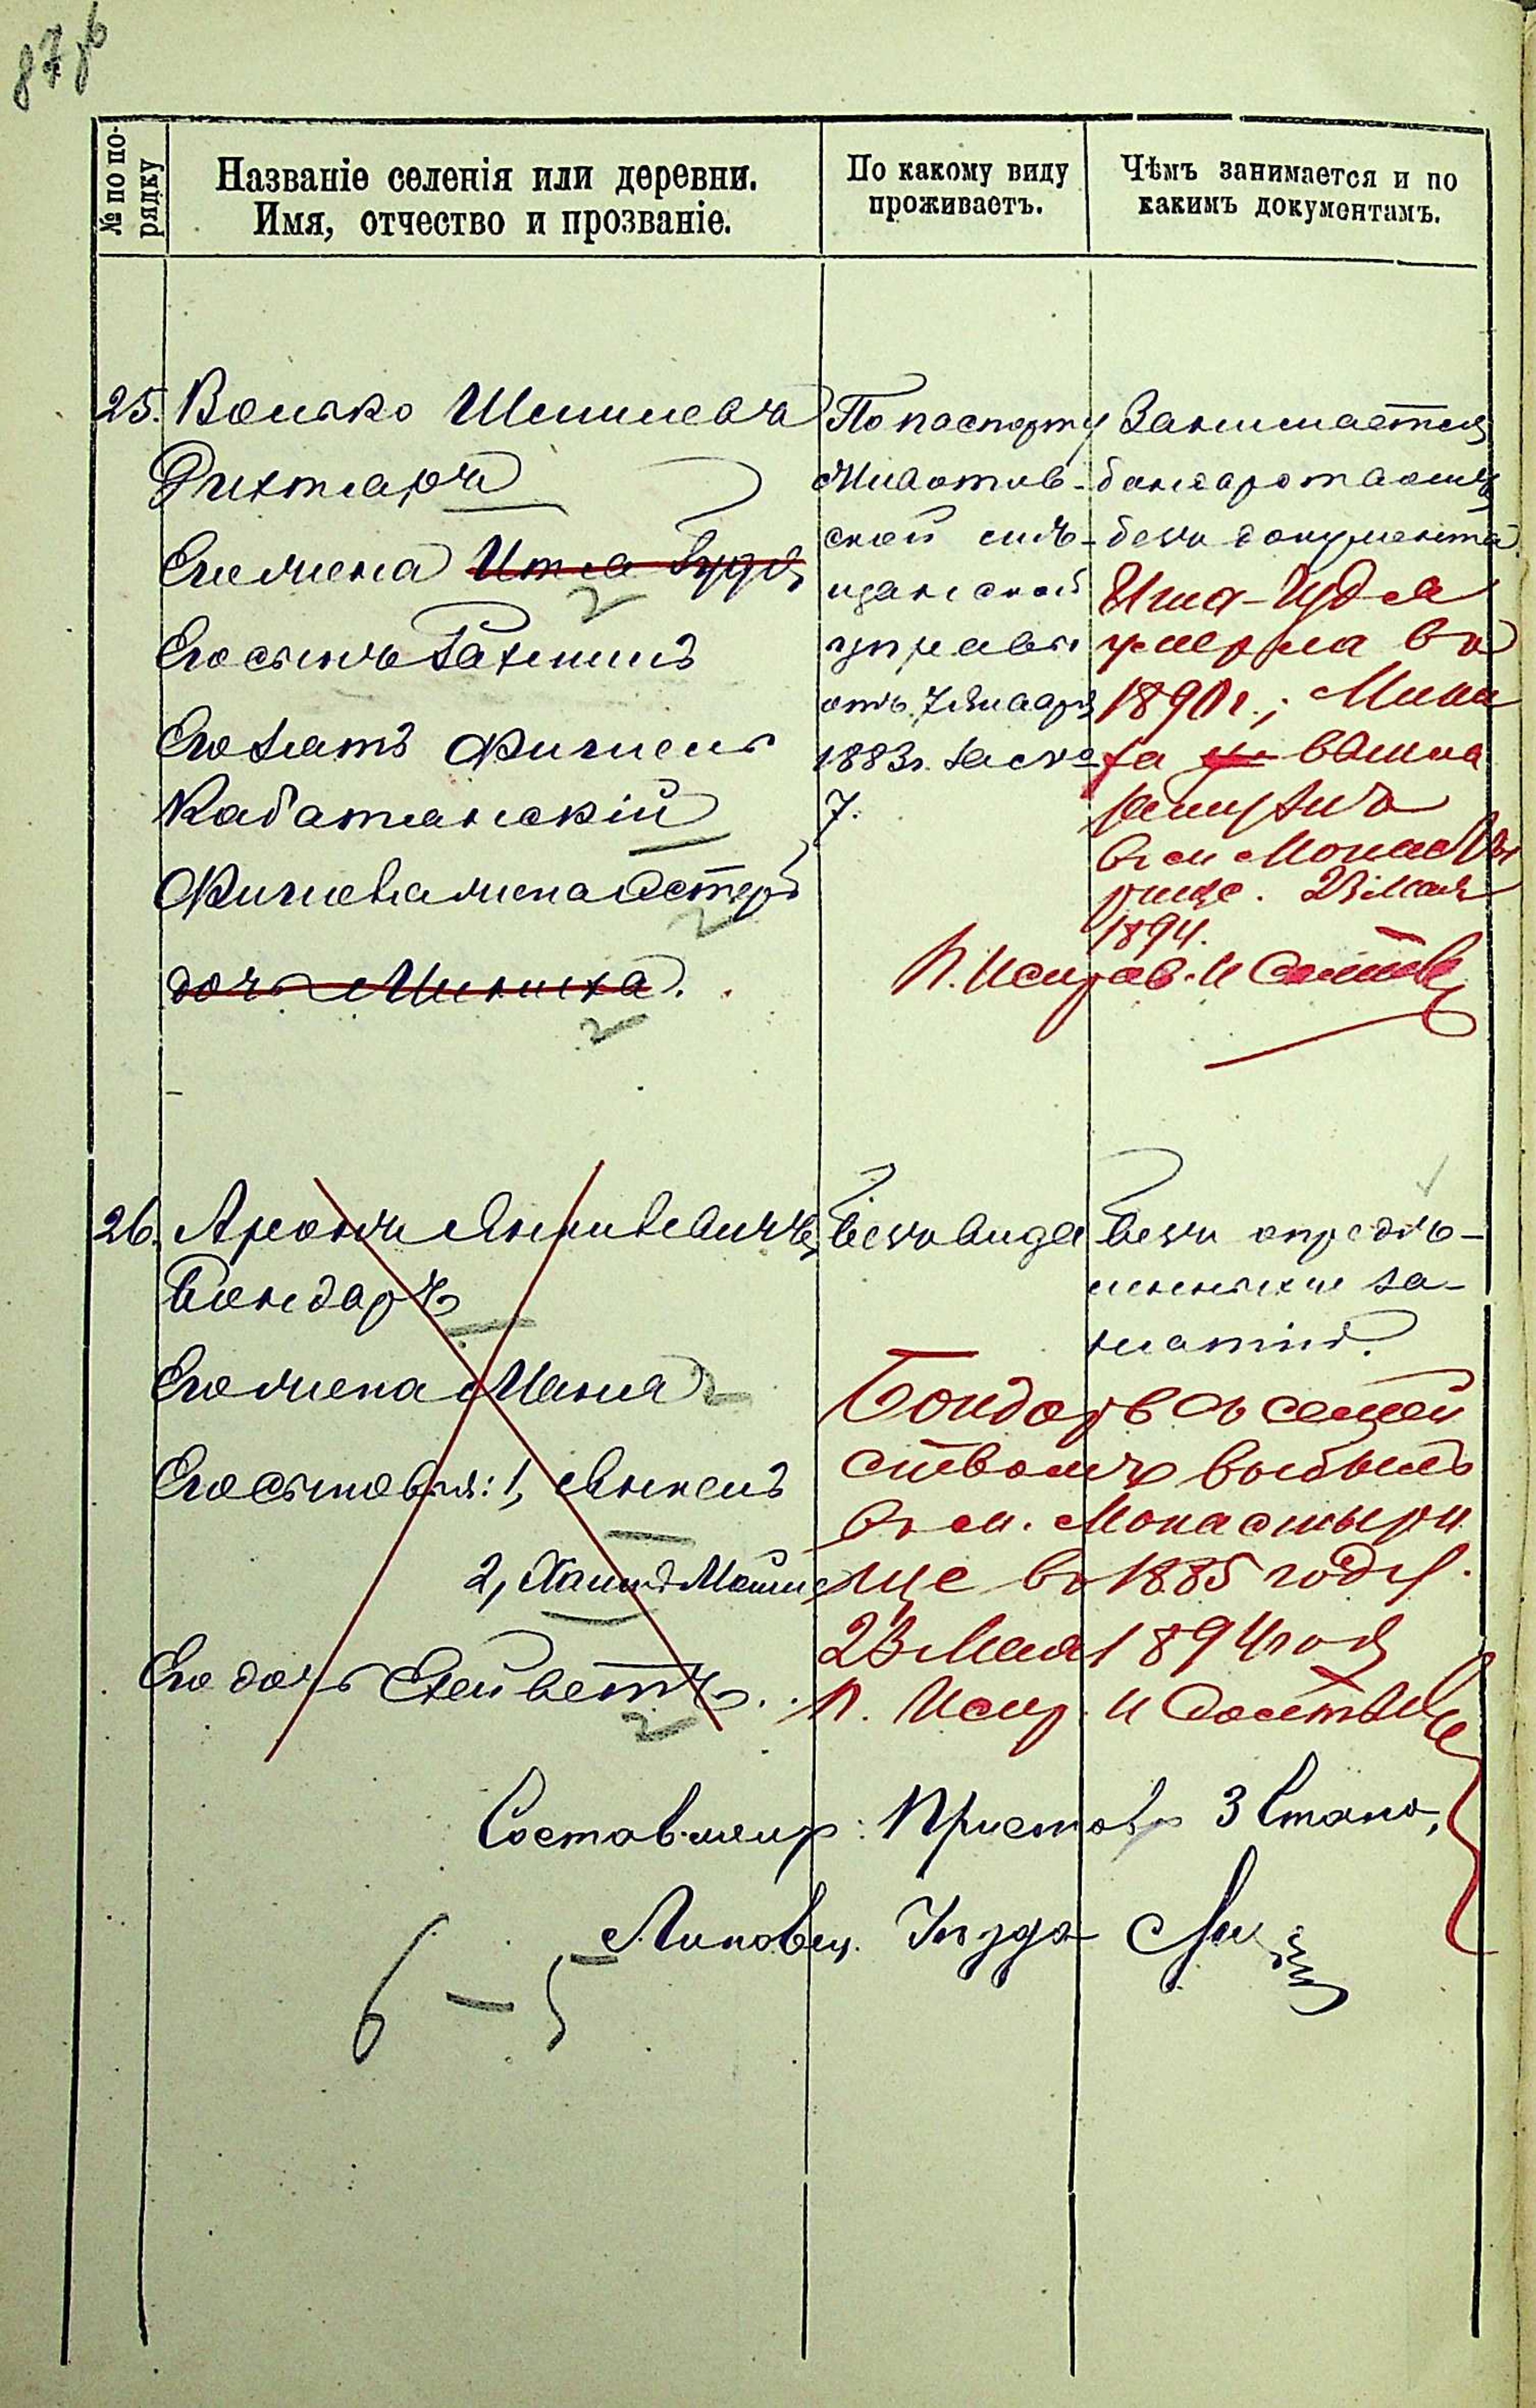 87 об
№ по по-
рядку
Названіе селенія или деревни.
Имя, отчество и прозваніе.
По какому виду
проживаетъ.
Чѣмъ занимается и по
какимъ документамъ.
25. Волько Шмилевъ
Рихтаръ
Его жена Итла Гудя
2
Его сынъ Рахмилъ
Его зятъ Фишель
Кабатянскій
Фишеля жена Естеръ
2
дочь Миниха.
2
По паспорту
Животов-
ской мѣ-
щанской
управы
отъ 7 Января
1883г. за №
7.
Занимается
бакаротаомъ
безъ документа
Итла-Гудя
умерла въ
1890г.; Мини
ха вышла
замужъ
въ м Монасты
рище. 23 Мая
1894.
П. Исправ. И
26. Аронъ Янкелевичъ
Бондаръ
Его жена Маня 2
Его сыновья: 1, Янкель
2, Хаимъ Мошко
Его дочь Ейветъ.
2
Безъ вида
Безъ опредѣ-
ленныхъ за-
нятій.
Бондарь съ семей
ствомъ выбылъ
въ м. Монастыри
ще въ 1885 году.
23 Мая 1894 года
П. Испр. И
Составилъ: Приставъ 3 Стана,
Липовец. Уѣзда
6 – 5